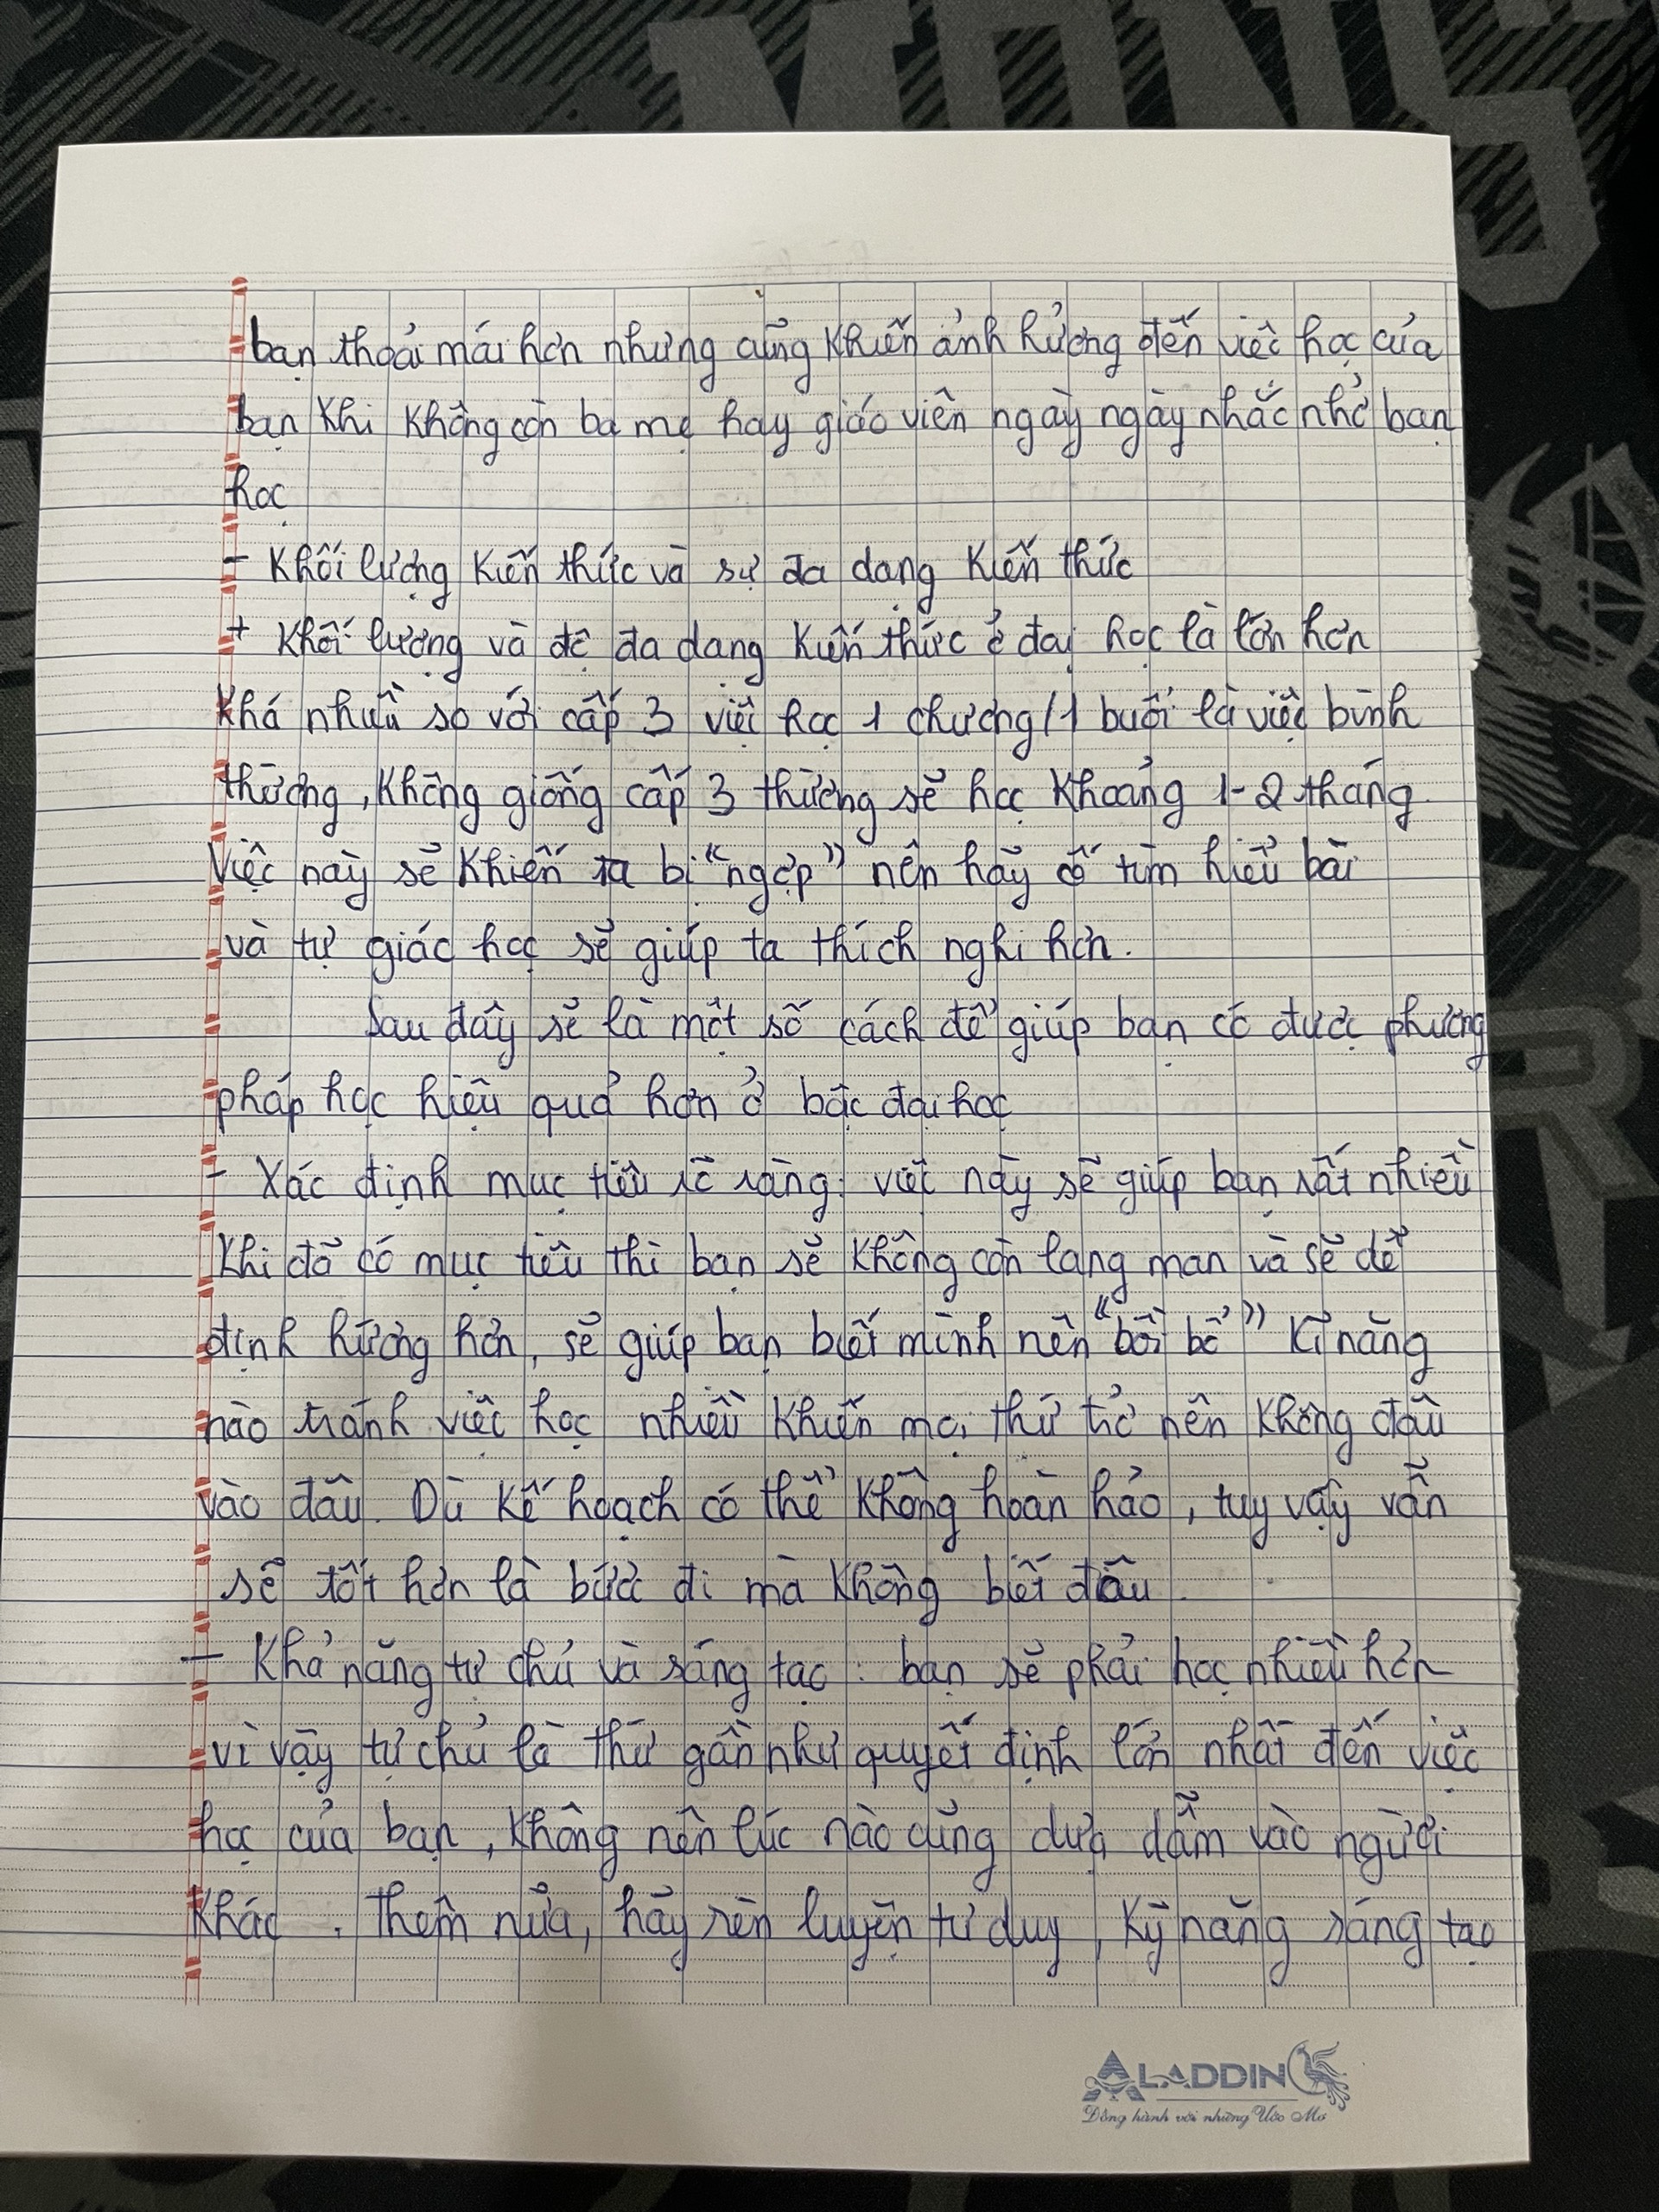 bạn thoải mái hơn nhưng cũng khiến ảnh hưởng đến việc học của
bạn khi không còn ba mẹ hay giáo viên ngày ngày nhắc nhở bạn
học
- Khối lượng kiến thức và sự đa dạng kiến thức
+ Khối lượng và độ đa dạng kiến thức ở đại học là lớn hơn
khá nhiều so với cấp 3 việc học 1 chương/1 buổi là việc bình
thường, không giống cấp 3 thường sẽ học khoảng 1-2 tháng.
Việc này sẽ khiến ta bị "ngợp" nên hãy cố tìm hiểu bài
và tự giác học sẽ giúp ta thích nghi hơn.
Sau đây sẽ là một số cách để giúp bạn có được phương
pháp học hiệu quả hơn ở bậc đại học
- Xác định mục tiêu rõ ràng: việc này sẽ giúp bạn rất nhiều
khi đã có mục tiêu thì bạn sẽ không còn lang man và sẽ dễ
định hướng hơn, sẽ giúp bạn biết mình nên "bồi bổ" kĩ năng
nào tránh việc học nhiều khiến mọi thứ trở nên không đâu
vào đâu. Dù kế hoạch có thể không hoàn hảo, tuy vậy vẫn
sẽ tốt hơn là bước đi mà không biết đâu.
- Khả năng tự chủ và sáng tạo: bạn sẽ phải học nhiều hơn
vì vậy tự chủ là thứ gần như quyết định lớn nhất đến việc
học của bạn, không nên lúc nào cũng dựa dẫm vào người
khác. Thêm nữa, hãy rèn luyện tư duy, kỹ năng sáng tạo
ALADDIN
Đồng hành với những Ước Mơ